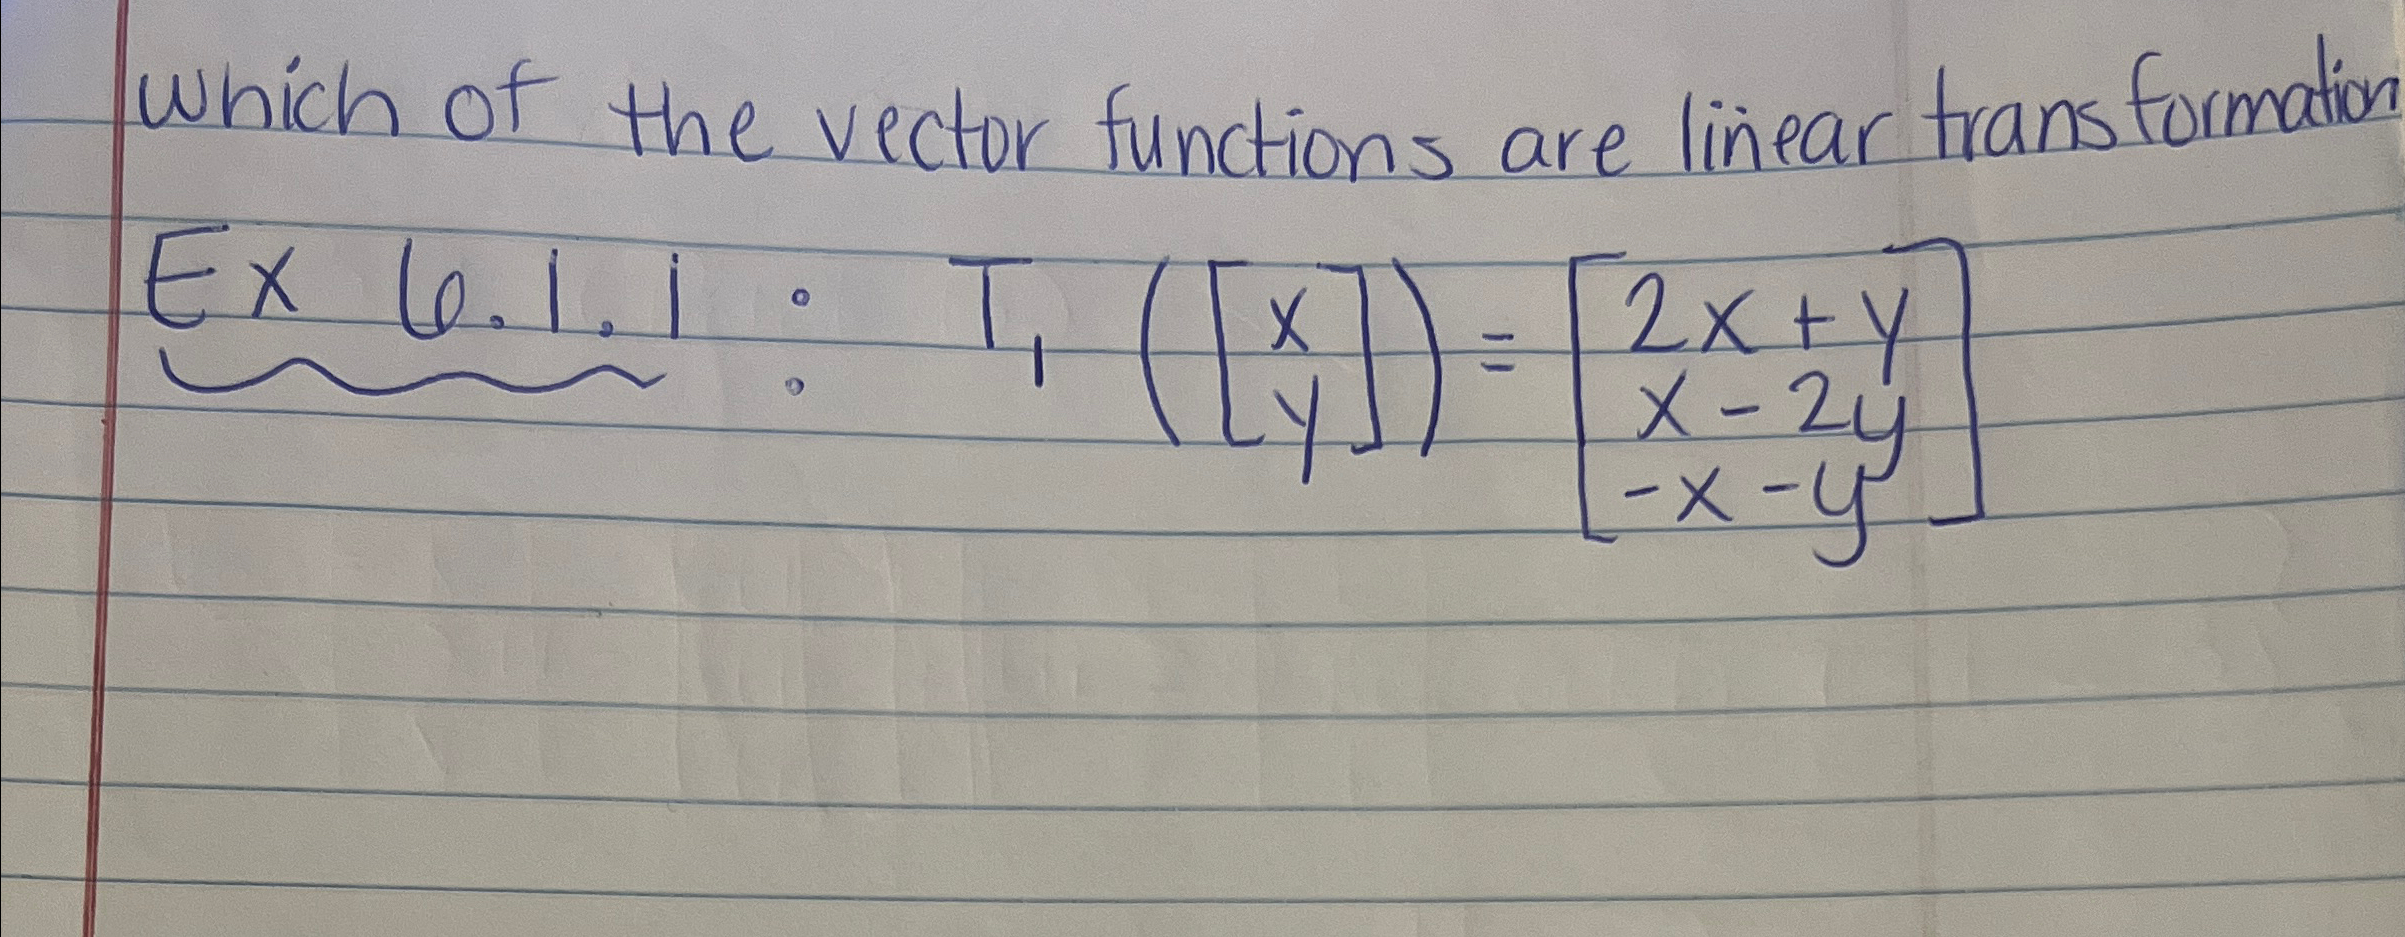 which of the vector functions are linear transformation
Ex 6.1.1 : T₁ ([x y]) = [2x + y
x - 2y
-x - y]